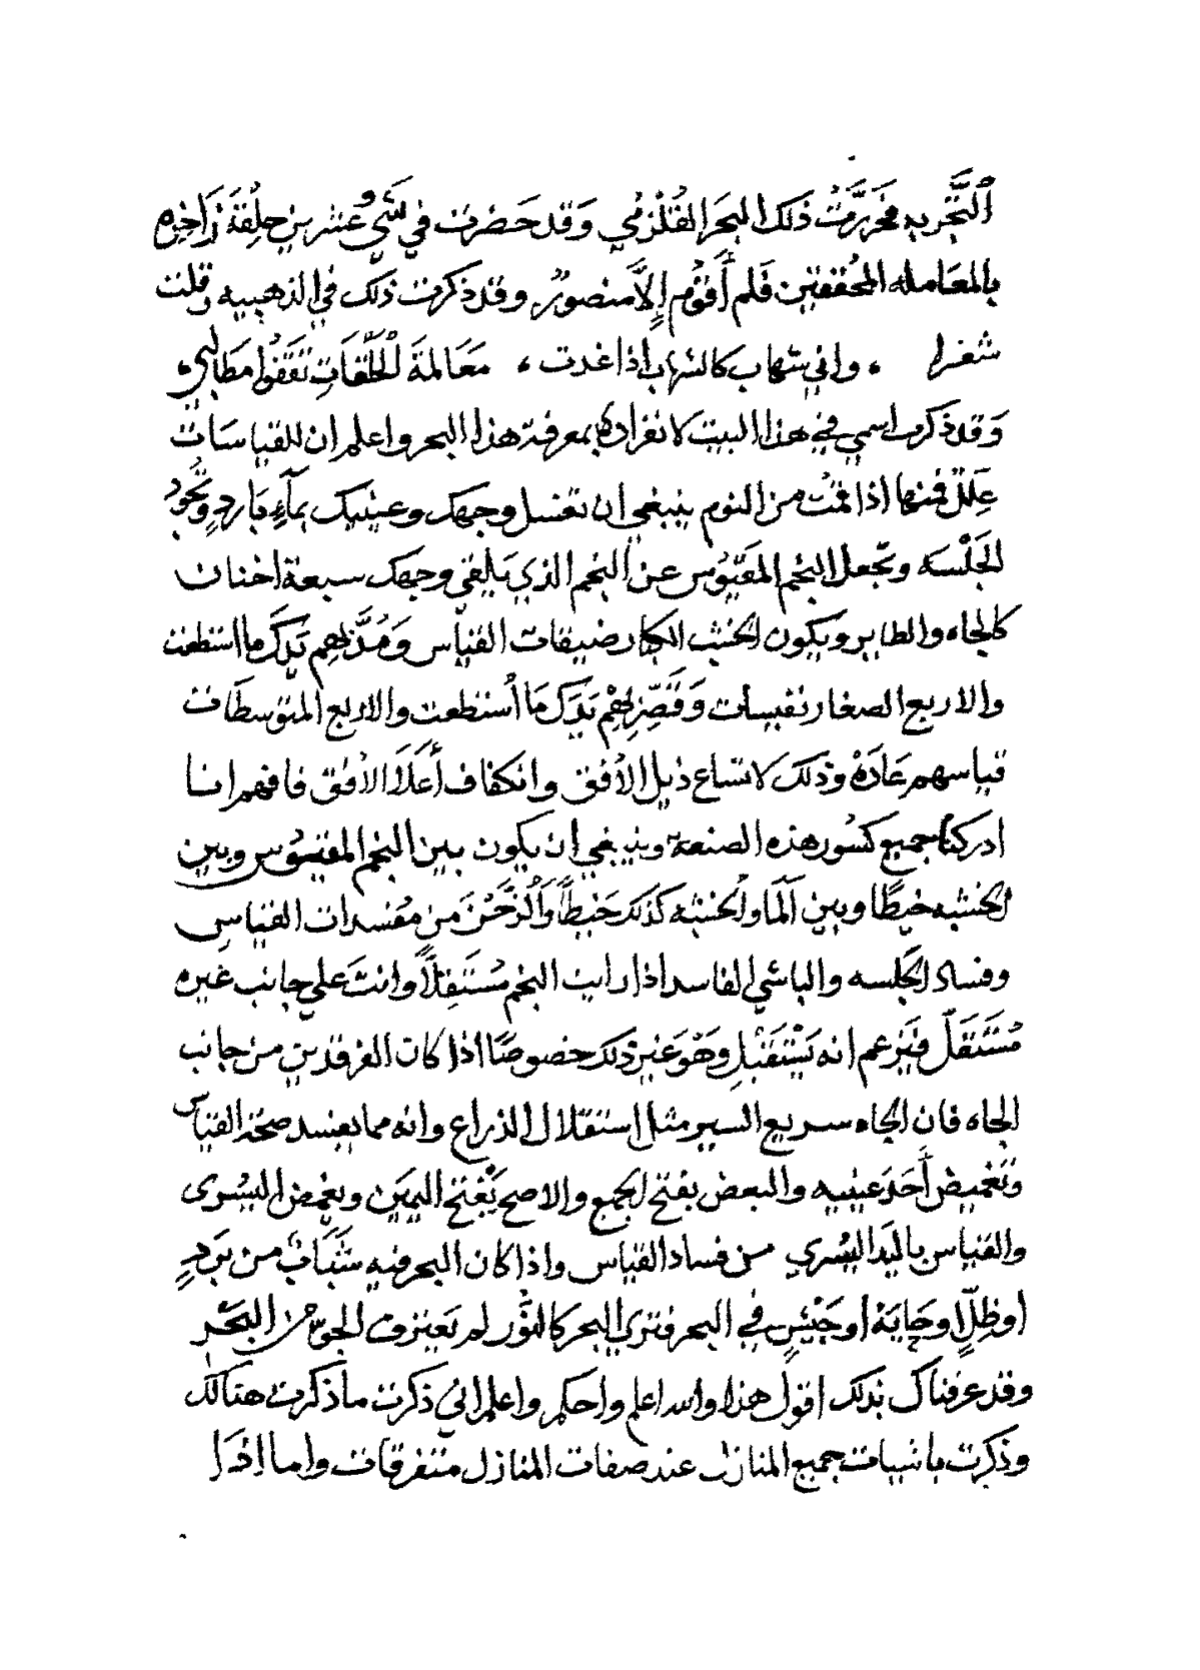 التَّجْرِبه فحَرَّرَتُ ذلك البحَر القُلزمُي وَقد حَضرت في شيٍ وعشرين حلِقةَ زَاخِره
بالمعَامله المحُققين فَلم أَقوُم إِلاَّ منصورٌ وقد ذكرت ذلك في الذهبيه وقلت
شعرا . واني شهاب كالشهاب اذا غدت . مَعَالمةَ
وَقد ذكرت اسمي في هذا البيت لانفرادي بمعرفة هذا البحر واعلم ان للقياسَات
عِلَلٌ فمنها اذا قمُت من النوم ينبغي ان تغسل وجهك وعينيك بمآءٍ بَاردٍ وتجُود
الجَلْسَه وتجعل النجم المَقيُوس عن النجم الذي يَلِقى وجهك سبعة اخنان
كالجاه والطاير ويكون الخشب الكبار ضيقات القياس وَمُدَّ لهم يَدَكَ ما استطعت
والاربع الصغار نفيسات وَقَصِّر لهِمُ يَدَك مَا أستطعت والاربع المتوسطَات
قياسهم عَادَهْ وذلك لاتساع ذيل الأفق وانكفاف أَعَلاَ الأُفق فافهم انا
ادركنا جميع كسُور هذه الصنعة وينبغي ان يكون بين النجم المقيُوس وبين
الخشبه خيطًا وبين المَا والخشبه كذلك خَيطاً من مفُسدات القياسِ
وفساد الجَلسه والباشي الفاسد اذا رايت النجم مُستَقِلاًّ وانتَ علي جانب غيره
مُستَقَلّ فتَزعم انه يَسْتَقْبل وَهُوَ غير ذلك خصوصًا اذا كان الفرقدين من جانب
الجاه فان الجاه سريع السير مثل استقلال الذراع وانه مما يفسد صحّة القياس
وتغميض أَحَد عينيه والبعض يفتح الجميع والاصح يَفْتح اليمَين ويغمض اليسُرى
والقياس باليد اليسُري من فساد القياس واذا كان البحر فيه ضَبَابٌ من بَردٍ
اوظِلٍّ اوحَايَة اوجَيْشٍ في البحر فتري البحر كالنوُّر لم تَعترف الجوش من البَحر
وقد عرفناك بذلك اقول هذا والله اعلم واحكم واعلم اني ذكرت ما ذكرت هنالك
وذكرت باشيات جميع المنازل عند صفات المنازل متفرقات واما اذَا